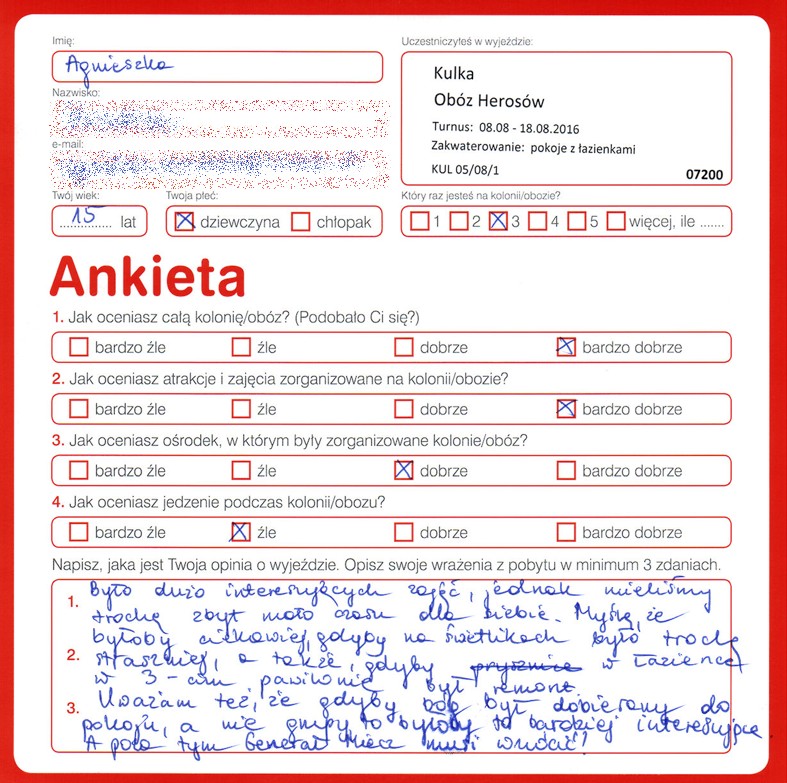 Imię:
Agnieszka
Nazwisko:
e-mail:
Twój wiek:
15 lat
Twoja płeć:
dziewczyna chłopak
Uczestniczyłeś w wyjeździe:
Kulka
Obóz Herosów
Turnus: 08.08 - 18.08.2016
Zakwaterowanie: pokoje z łazienkami
KUL 05/08/1
07200
Który raz jesteś na kolonii/obozie?
1 2 3 4 5 więcej, ile .......
Ankieta
1. Jak oceniasz całą kolonię/obóz? (Podobało Ci się?)
bardzo źle źle dobrze bardzo dobrze
2. Jak oceniasz atrakcje i zajęcia zorganizowane na kolonii/obozie?
bardzo źle źle dobrze bardzo dobrze
3. Jak oceniasz ośrodek, w którym były zorganizowane kolonie/obóz?
bardzo źle źle dobrze bardzo dobrze
4. Jak oceniasz jedzenie podczas kolonii/obozu?
bardzo źle źle dobrze bardzo dobrze
Napisz, jaka jest Twoja opinia o wyjeździe. Opisz swoje wrażenia z pobytu w minimum 3 zdaniach.
1. Było dużo interesujących zajęć, jednak mieliśmy
trochę zbyt mało czasu dla siebie. Myślę, że
byłoby ciekawiej, gdyby na świetlikach było trochę
2. straszniej, a także, gdyby prysznice w łazience
w 3-cim pawilonie był remont.
3. Uważam też, że gdyby bóg był dobierany do
pokoju, a nie grupy to byłoby to bardziej interesujące
A poza tym Generał Miecz musi wrócić!